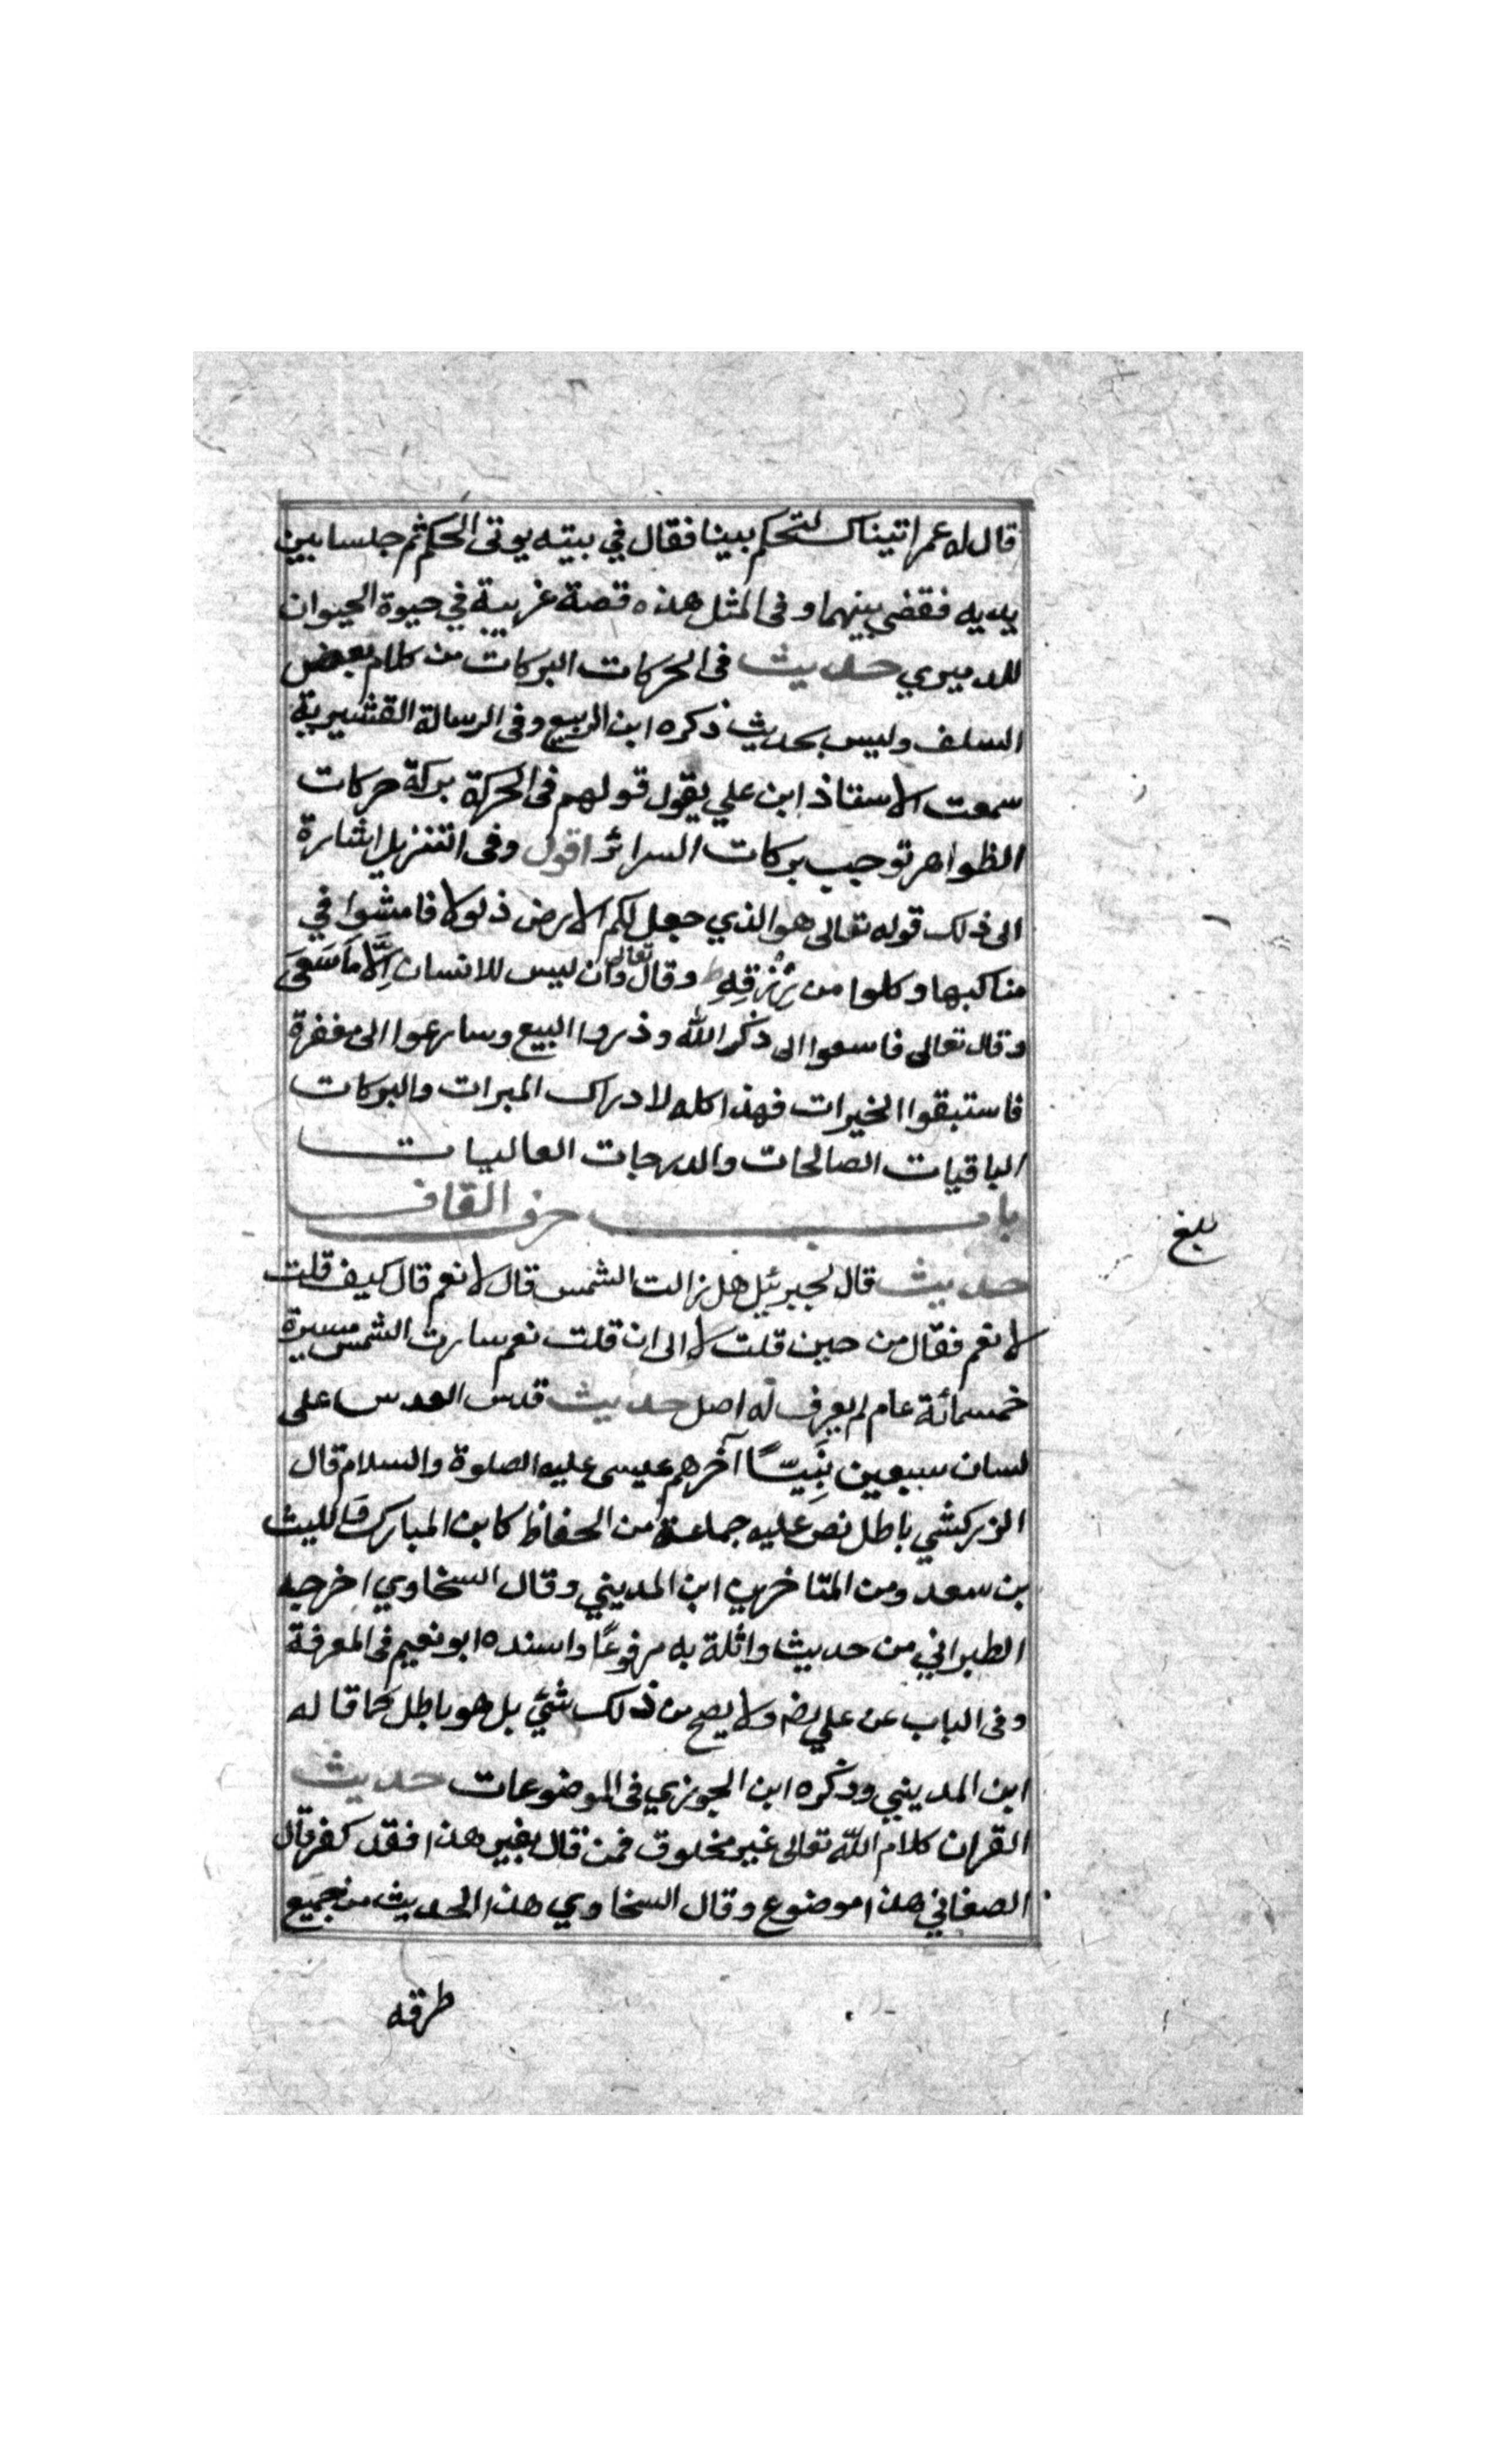 قال له عمر اتيناك لتحكم بيننا فقال في بيته يوتى الحكم ثم جلسا بين
يديه فقضى بينهما وفى المثل هذه قصة غريبة في حيوة الحيوان
للدميري حديث فى الحركات البركات من كلام بعض
السلف وليس بحديث ذكره ابن الربيع وفى الرسالة القشيرية
سمعت الاستاذ ابن علي يقول قولهم فى الحركة بركة حركات
الظواهر توجب بركات السرائر اقول وفى التنزيل اشارة
الى ذلك قوله تعالى هو الذي جعل لكم الارض ذلولا فامشوا في
مناكبها وكلوا من رِزْقِهِ ط وقال تعالى وان ليس للانسان اِلَّا مَا سَعَى
وقال تعالى فاسعوا الى ذكر الله وذروا البيع وسارعوا الى مغفرة
فاستبقوا الخيرات فهذا كله لادراك المبرات والبركات
الباقيات الصالحات والدرجات العاليات
باب حرف القاف
حديث قال لجبرئيل هل زالت الشمس قال لا نعم قال كيف قلت
لا نعم فقال من حين قلت لا الى ان قلت نعم سارت الشمس مسيرة
خمسمائة عام لم يعرف له اصل حديث قدس العدس على
لسان سبعين نَبِيًّا آخرهم عيسى عليه الصلوة والسلام قال
الزركشي باطل نص عليه جماعة من الحفاظ كابن المبارك والليث
بن سعد ومن المتاخرين ابن المديني وقال السخاوي اخرجه
الطبراني من حديث واثلة به مرفوعًا واسنده ابو نعيم فى المعرفة
وفى الباب عن علي رض ولا يصح من ذلك شئ بل هو باطل كما قاله
ابن المديني وذكره ابن الجوزي فى الموضوعات حديث
القران كلام الله تعالى غير مخلوق فمن قال بغير هذا فقد كفر قال
الصغاني هذا موضوع وقال السخاوي هذا الحديث من جميع
طرقه
بلغ